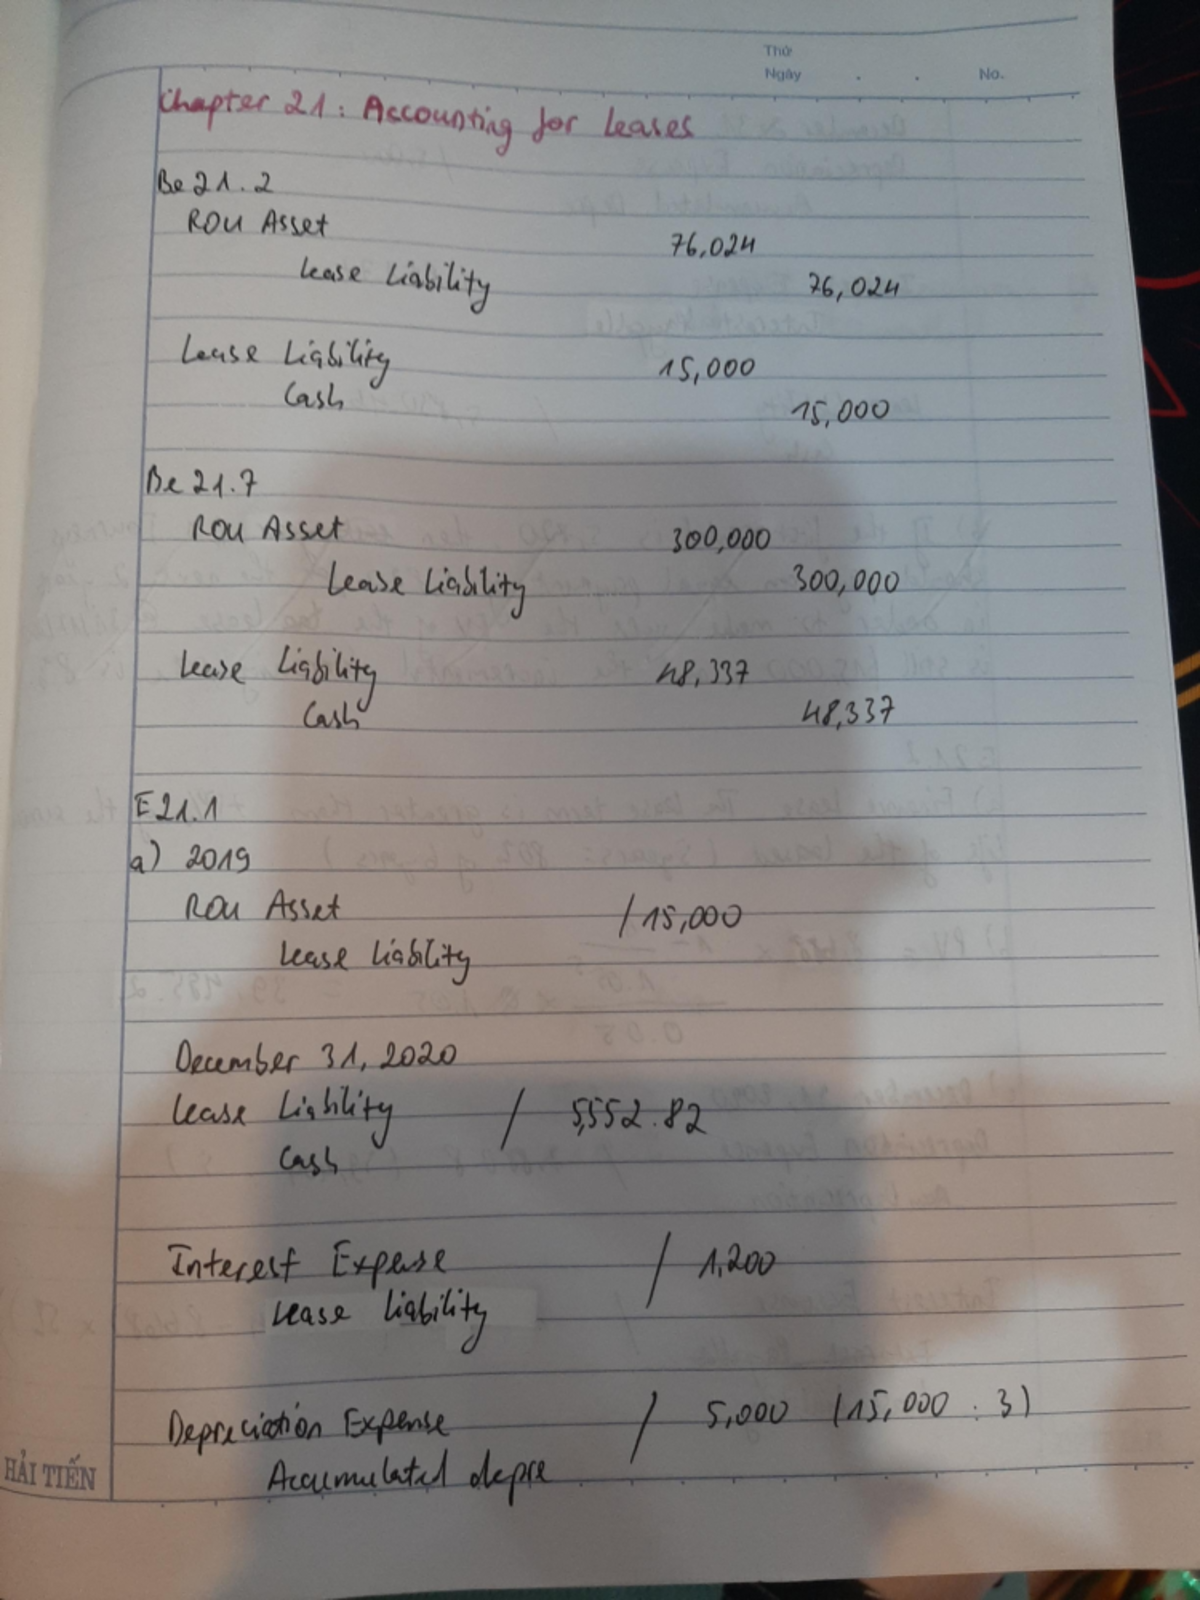 Thứ
Ngày . . No.
Chapter 21: Accounting for Leases
Be 21.2
ROU Asset 76,024
Lease Liability 76,024
Lease Liability 15,000
Cash 15,000
Be 21.7
ROU Asset 300,000
Lease Liability 300,000
Lease Liability 48,337
Cash 48,337
E21.1
a) 2019
ROU Asset / 15,000
Lease Liability
December 31, 2020
Lease Liability / 5,552.82
Cash
Interest Expense / 1,200
Lease Liability
Depreciation Expense / 5,000 (15,000 : 3)
Accumulated depre
HẢI TIẾN